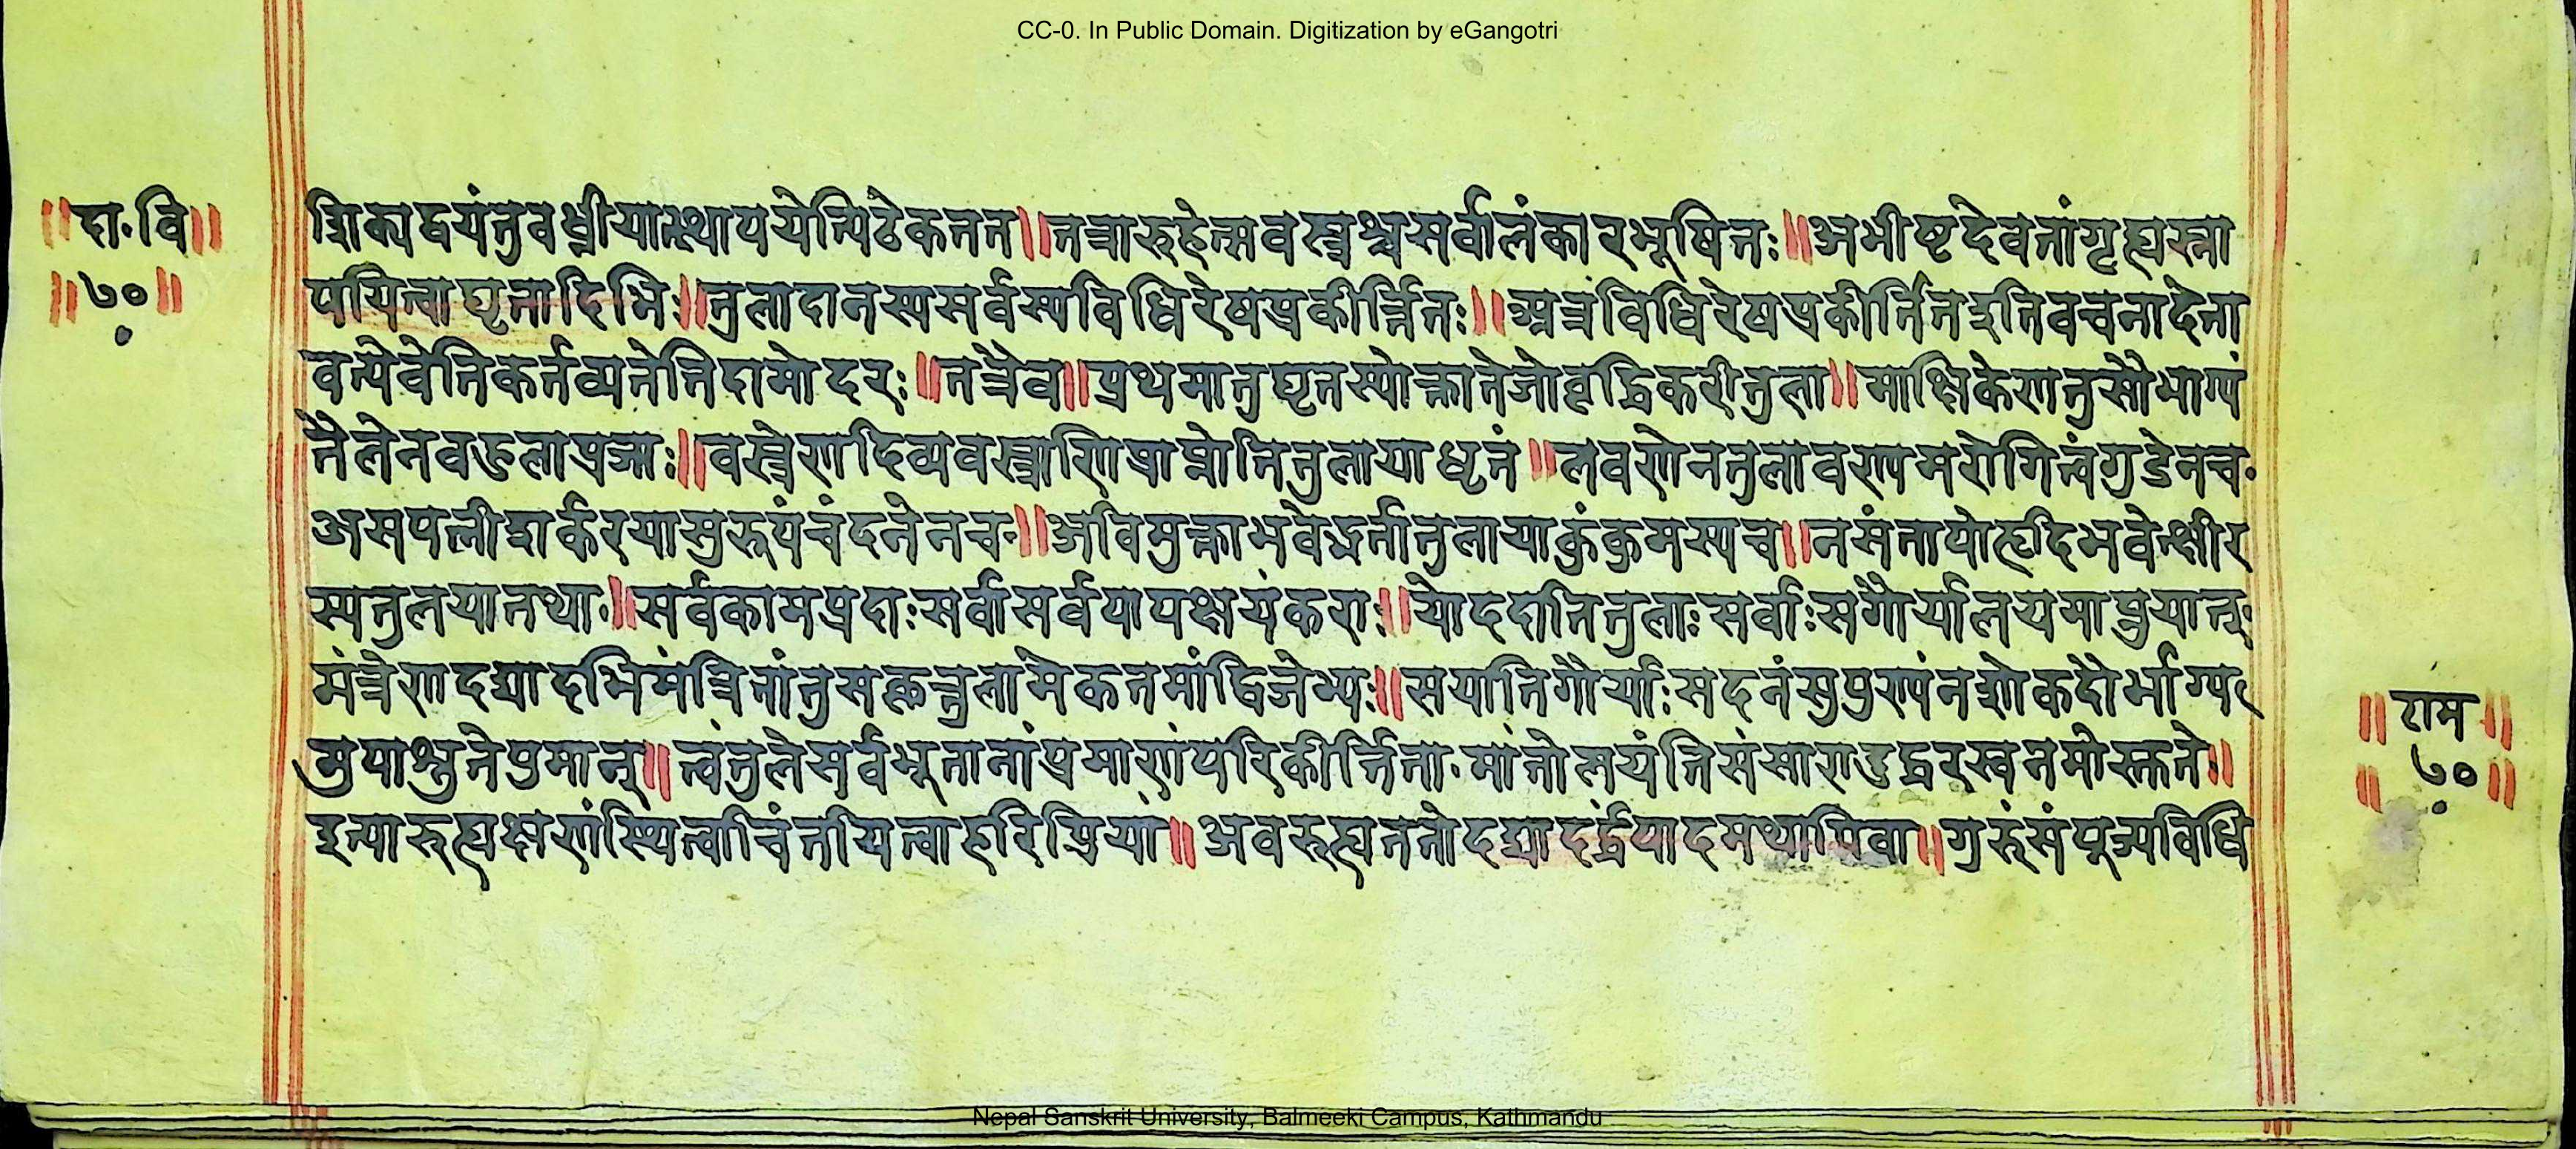 CC-0. In Public Domain. Digitization by eGangotri
॥दा.वि॥
॥७०॥
च्छिक्यद्वयंतुवध्नीयात्स्थापयेत्पिटेकनन॥तत्रारुहेत्सवस्त्रश्चसर्वालंकारभूषितः॥अभीष्टदेवतांगृह्यस्ना
पयित्वाघृतादिभिः॥तुलादानस्यसर्वस्यविधिरेषप्रकीर्त्तितः॥अत्रविधिरेषप्रकीर्त्तितइतिवचनादेता
वत्येवेतिकर्तव्यतेतिदामोदरः॥तत्रैव॥प्रथमातुघृतस्योक्तातेजोवृद्धिकरीतुला॥माक्षिकेणतुसौभाग्यं
तैलेनवहुलाप्रजाः॥वस्त्रेणदिव्यवस्त्राणिप्राप्नोतितुलायाधृतं॥लवणेनतुलावण्यमरोगित्वंगुडेनच.
असपत्नीशर्करयासुरूपंचंदनेनच॥अवियुक्ताभवेद्भर्तातुलायाकुंकुमस्यच॥नसंतापोहृदिभवेत्क्षीर
स्यतुलयातथा.॥सर्वकामप्रदाःसर्वासर्वपापक्षयंकराः॥योददातितुलाःसर्वाःसगौर्यालयमाप्नुयात्
मंत्रेणदद्यादभिमंत्रितांतुसकृत्तुलामेकतमांद्विजेभ्यः॥सयातिगौर्याःसदनंसुपुण्यंनशोकदौर्भाग्य
मुपाश्नुतेपुमान्॥त्वंतुलेसर्वभूतानांप्रमाणंपरिकीर्त्तिता.मांतोलयंतिसंसारादुद्धरस्वनमोस्तुते॥
इत्यारुह्यक्षणंस्थित्वाचिंतयित्वाहरिप्रियां॥अवरुह्यततोदद्यादर्द्धंपादमथापिवा॥गुरुंसंपूज्यविधि
॥राम॥
॥७०॥
Nepal Sanskrit University, Balmeeki Campus, Kathmandu